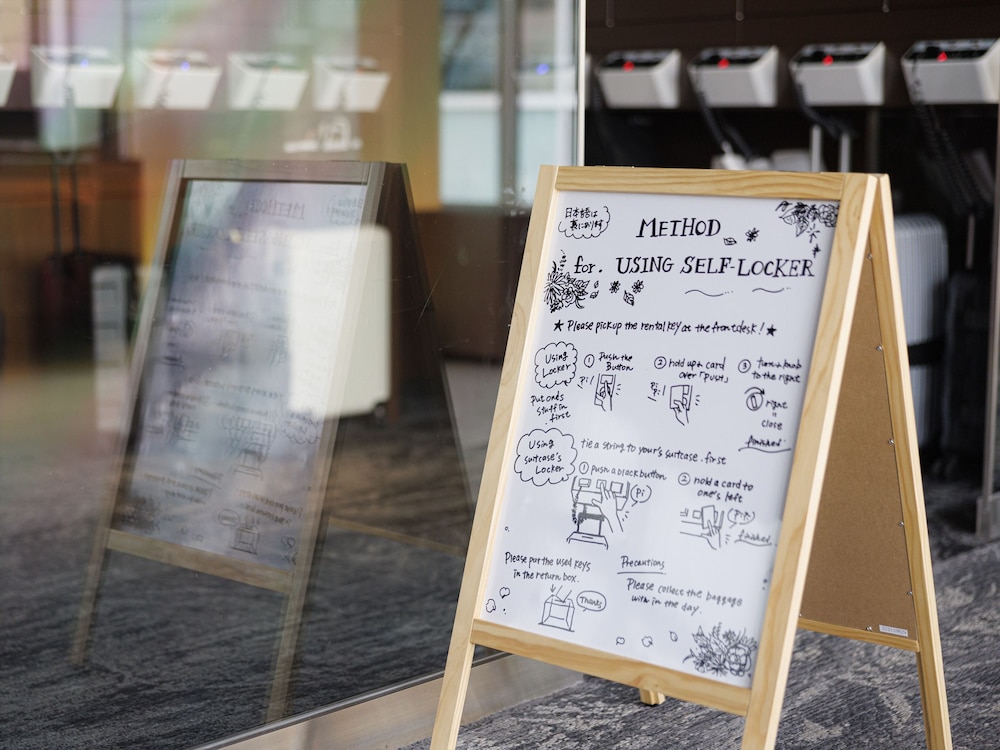 日本語は
裏にあります
METHOD
for. USING SELF-LOCKER
★ Please pickup the rental key at the frontdesk! ★
Using
Locker
put onds
stuff in
first
① Push the
Button
Pi!
② hold up a card
over 「push」
Pi
Pi!
③ turn a knob
to the right
right
=
close
finished
Using
suitcase's
Locker
tie a string to your's suitcase. first
① push a black button
Pi
② hold a card to
one's left
Pi Pi
finished
Please put the used keys
in the return box.
Thanks
Precautions
Please collect the baggage
with in the day.